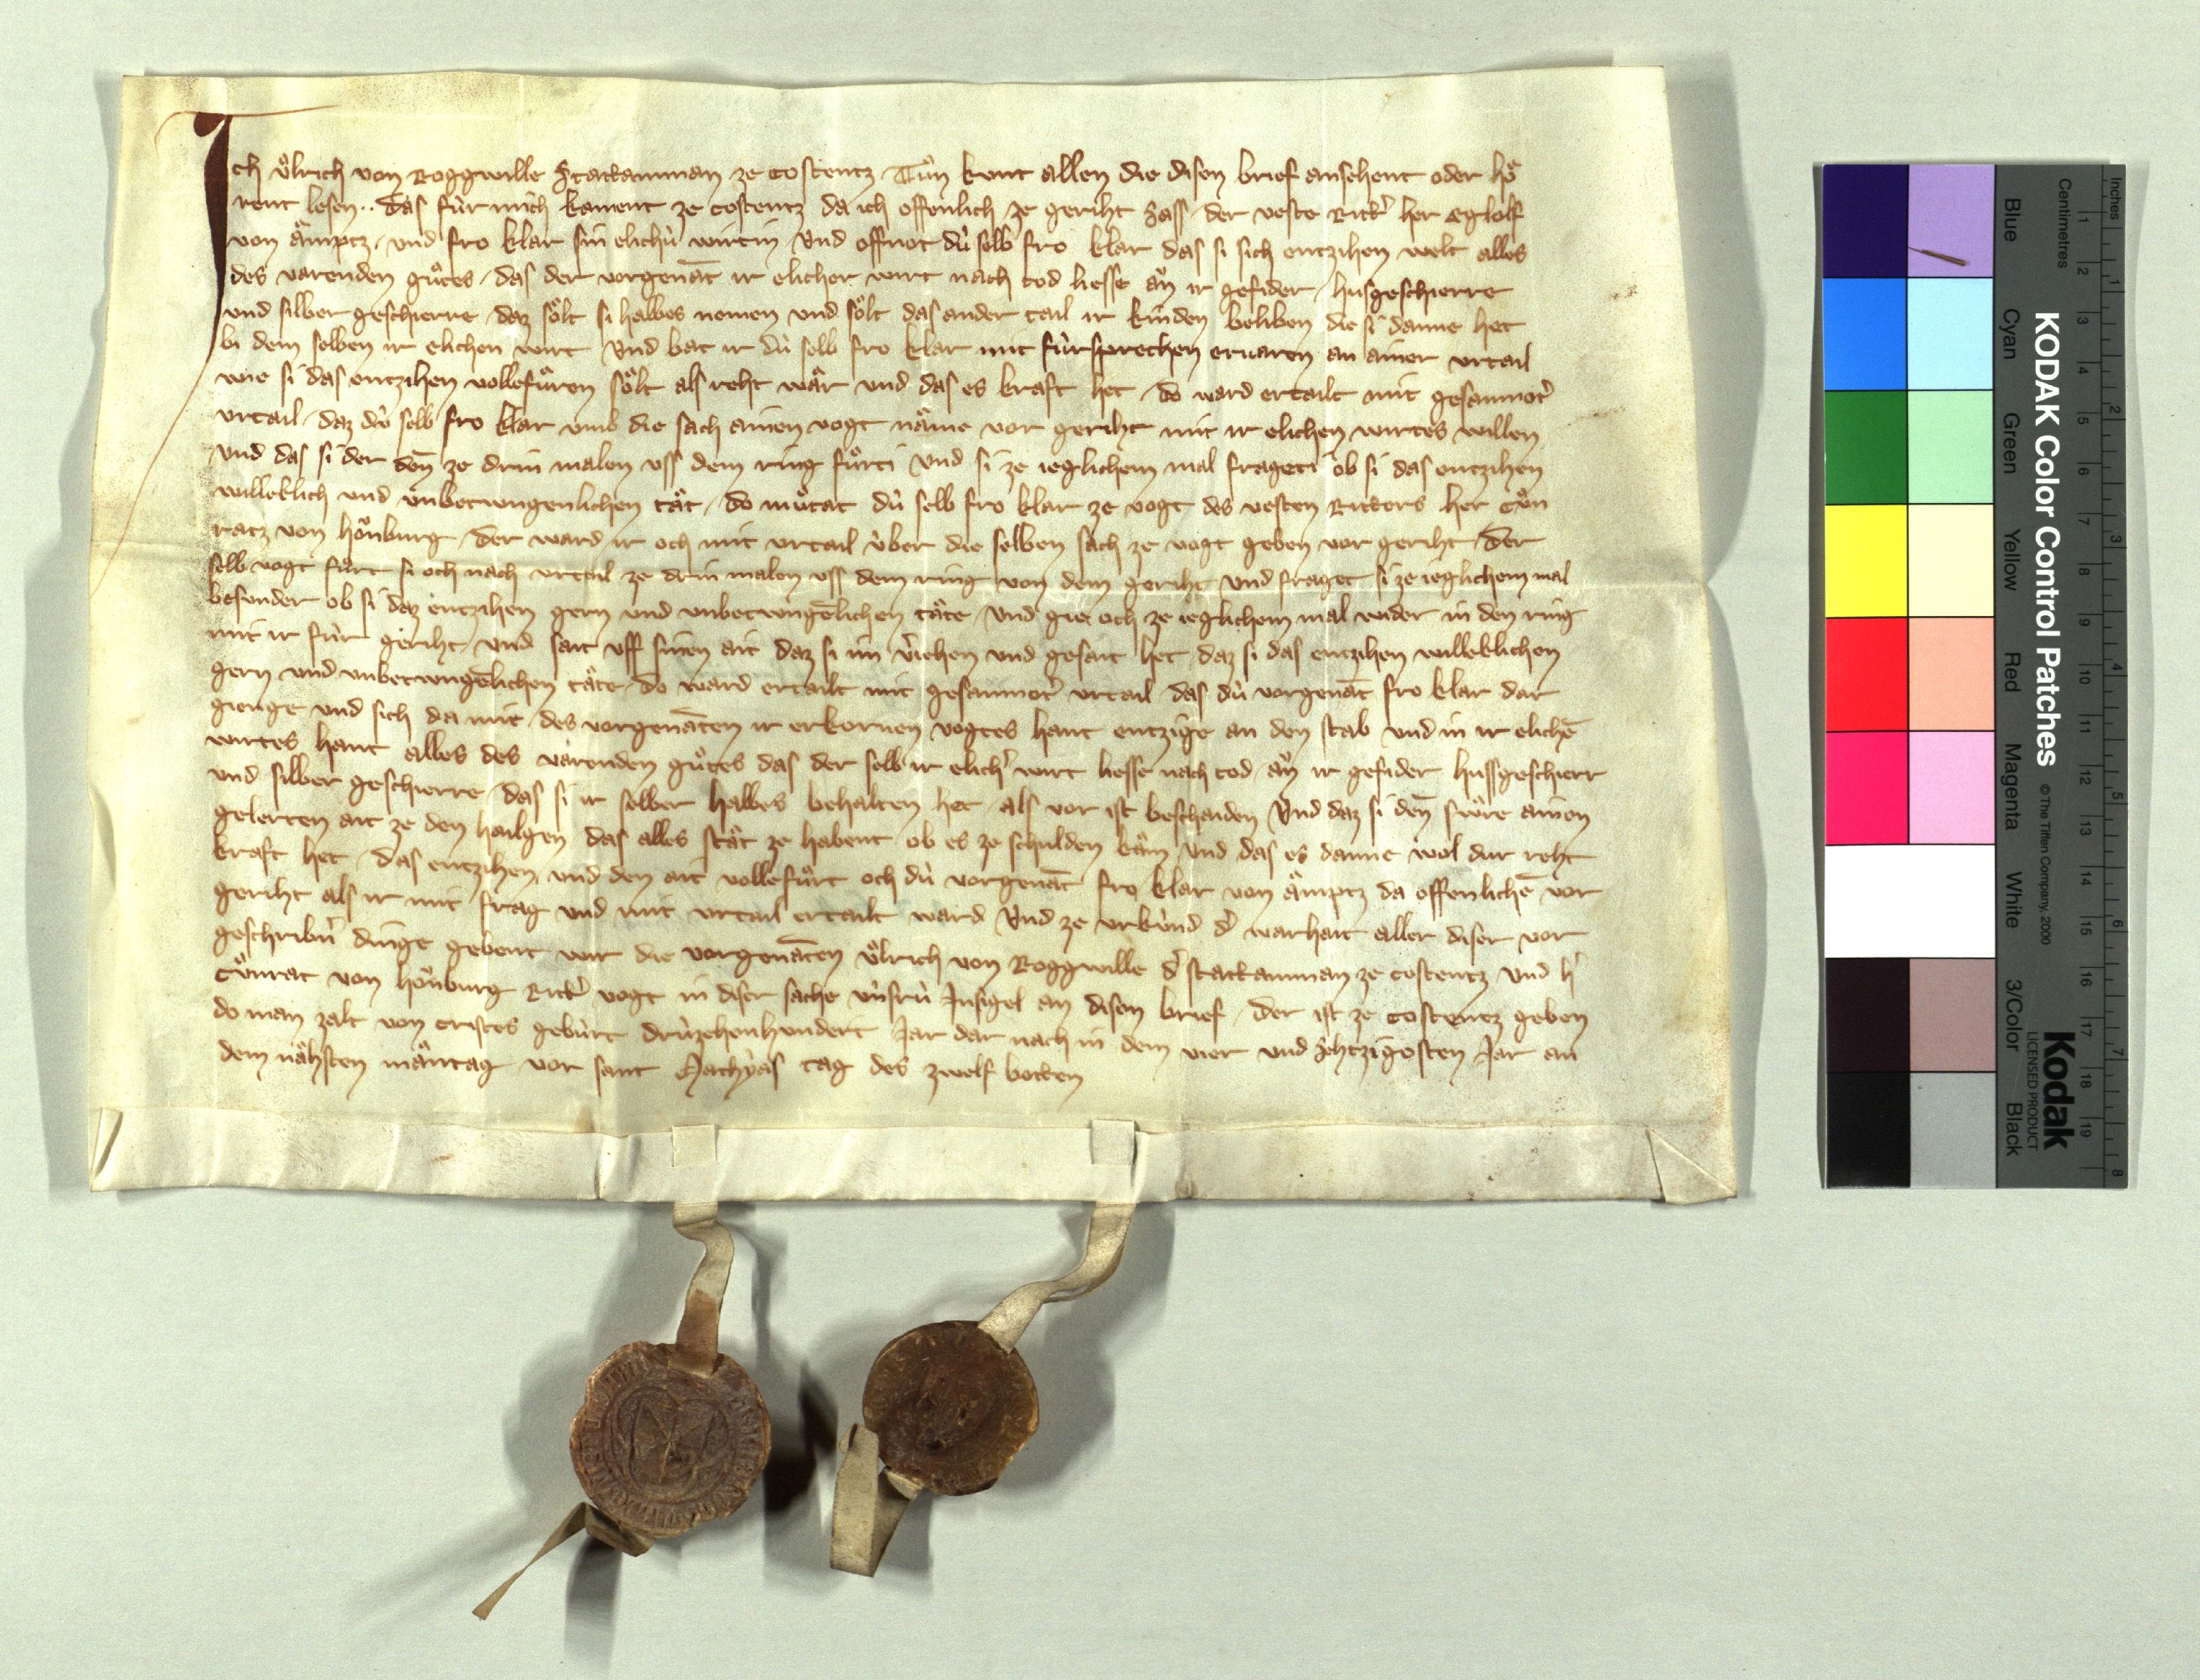 Ich Uͦlrich von Roggwille Stattamman ze Costentz Tuͦn kunt allen die disen brief ansehent oder hoͤ
rent lesen ·· das fuͥr mich kament ze Costentz da ich offenlich ze geriht sass der veste Ritt' her Eglolf
von Aͤmptz und fro klar sin elichuͥ wirtin Und offnot duͥ selb fro klar das si sich entzihen welt alles
des varenden guͦtes das der vorgenāt ir elicher wirt nach tod liesse aͮn ir gefider husgeschierre
und silber geschierre daz soͤlt si halbes nemen und soͤlt das ander tail ir kinden beliben die si danne het
bi dem selben ir elichen wirt Und bat ir duͥ selb fro klar mit fuͥrsprechen ervaren an ainer urtail
wie si das entzihen vollefuͤren soͤlt als reht waͤr und das es kraft het do ward ertailt mit gesamnot'
urtail daz duͥ selb fro klar umb die sach ainen vogt naͤme vor geriht mit ir elichen wirtes willen
und das si der deñ ze drin malen uss dem ring fuͤrti und si ze ieglichem mal frageti ob si das entzihen
willeklich und unbetwungenlichen taͤt do muͦtat duͥ selb fro klar ze vogt des vesten Ritters her Cuͦn
ratz von Hoͮnburg der ward ir och mit urtail uͥber die selben sach ze vogt geben vor geriht der
selb vogt fuͦrt si och nach urtail ze drin malen uss dem ring von dem geriht und fraget si ze ieglichem mal
besunder ob si daz entzihen gern und unbetwungēlichen taͤte und gie och ze ieglichem mal wider in den ring
mit ir fuͥr geriht und sait uff sinen ait daz si im v'iehen und gesait het daz si das entzihen willeklichen
gern und unbetwungēlichen taͤte do ward ertailt mit gesamnot' urtail das duͥ vorgenāt fro klar dar
gienge und sich da mit des vorgenāten ir erkornen vogtes hant entzige an den stab und in ir elichē
wirtes hant alles des varenden guͦtes das der selb ir elich' wirt liesse nach tod aͮn ir gefider hussgeschierr
und silber geschierre das si ir selber halbes behalten het als vor ist beschaiden Und daz si deñ swuͤre ainen
gelerten ait ze den hailgen das alles staͤt ze habent ob es ze schulden kaͤm und das es danne wol dur reht
kraft het das entzihen und den ait vollefuͦrt och duͥ vorgenāt fro klar von Aͤmptz da offenlichē vor
geriht als ir mit frag und mit urtail ertailt ward Und ze urkuͥnd d' warhait aller diser vor
geschribn' dinge gebent wir die vorgenāten Uͦlrich von Roggwille d' stattamman ze Costentz und h'
Cuͦnrat von Hoͮnburg Ritt' vogt in diser sache uͥnsruͥ Insigel an disen brief der ist ze Costentz geben
do man zalt von Cristes gebuͥrt druͥzehenhundert Jar dar nach in dem vier und sehtzigosten Jar an
dem naͤhsten maͤntag vor sant Mathyas tag des zwelf botten
KODAK Color Control Patches © The Tiffen Company, 2000
Kodak
LICENSED PRODUCT
Blue Cyan Green Yellow Red Magenta White 3/Color Black
Inches 1 2 3 4 5 6 7 8
Centimetres 1 2 3 4 5 6 7 8 9 10 11 12 13 14 15 16 17 18 19